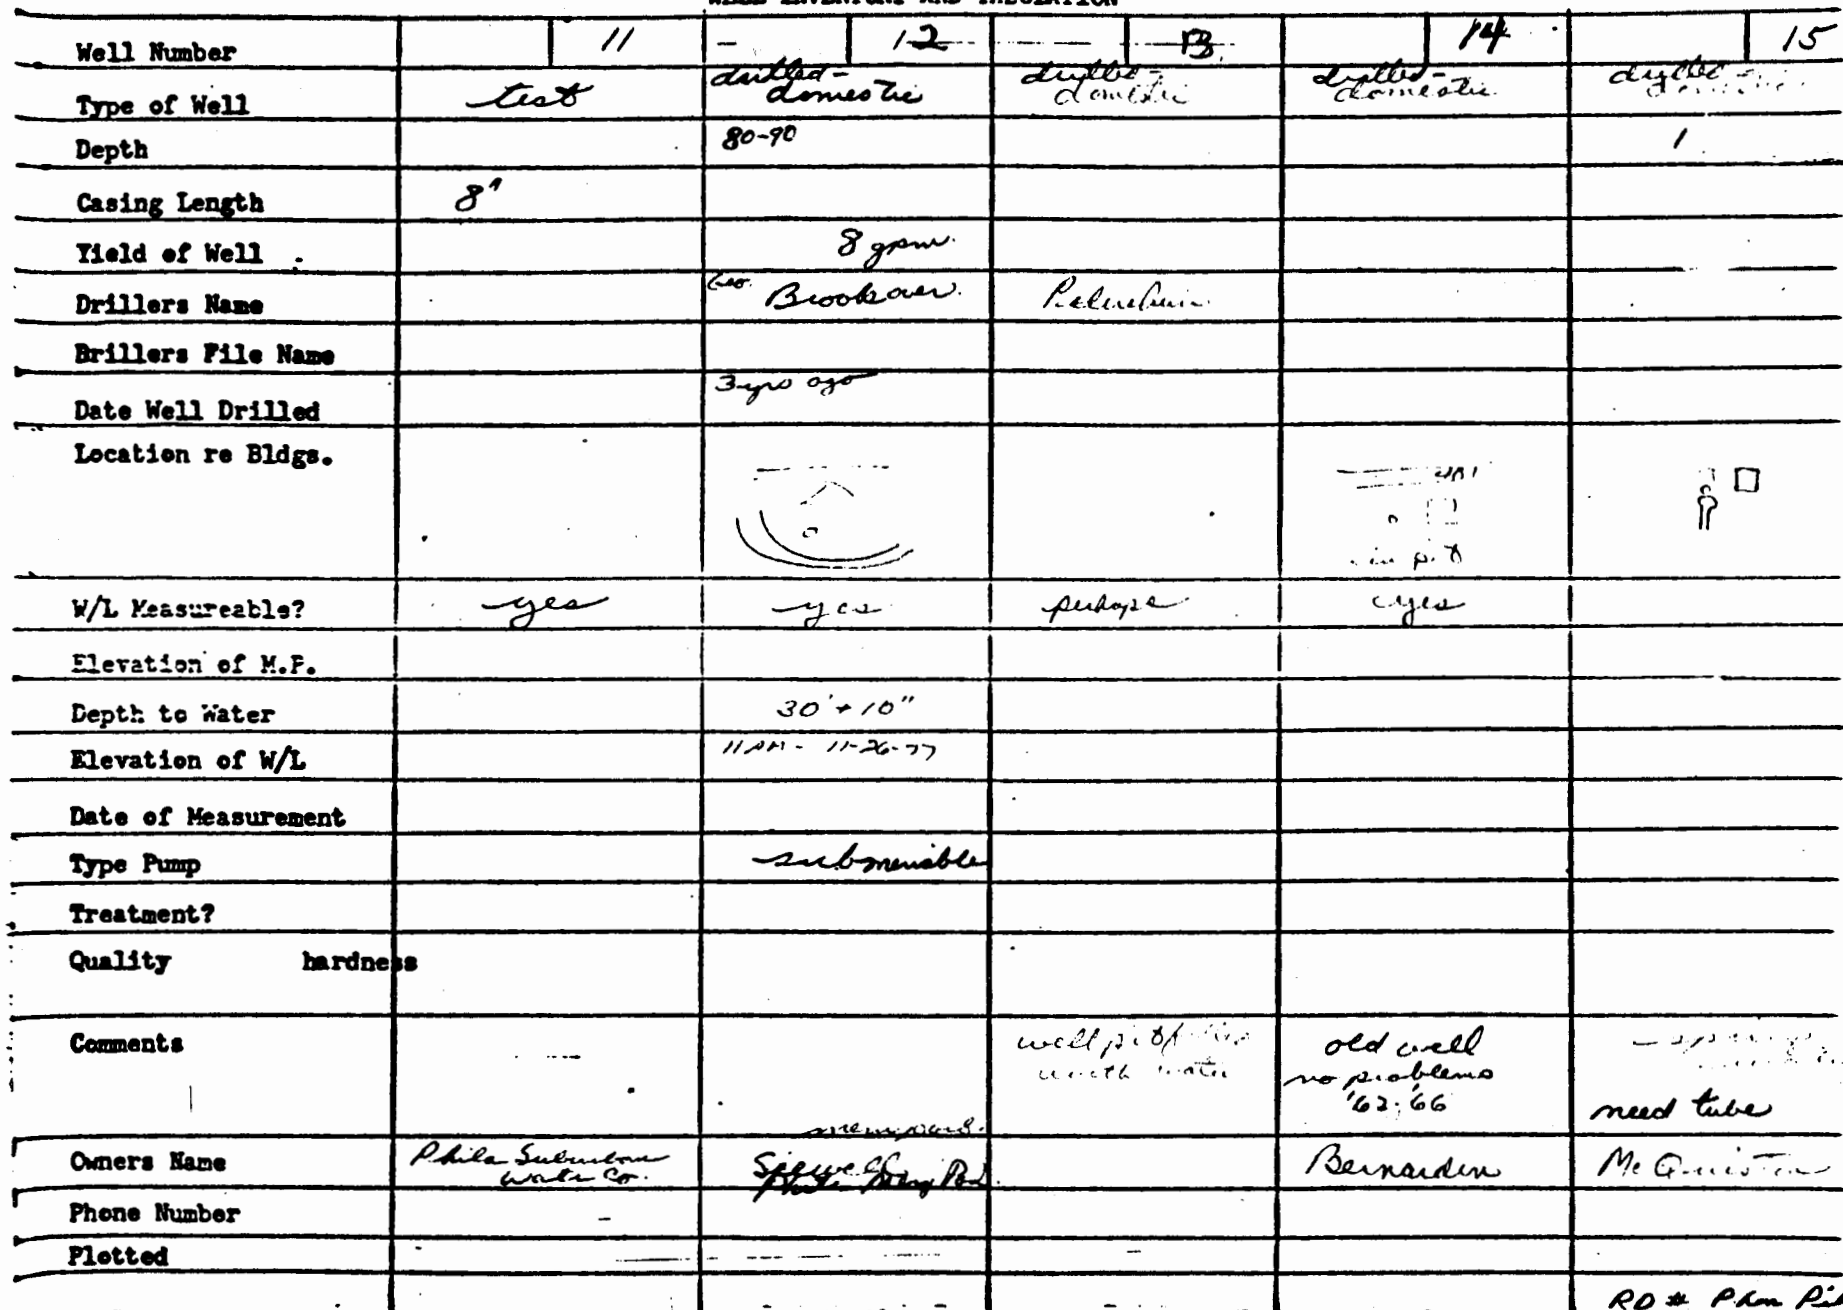 WELL INVENTORY AND TABULATION
Well Number 11 12 13 14 15
Type of Well test drilled- domestic drilled- domestic drilled- domestic drilled
Depth 80-90 1
Casing Length 8"
Yield of Well 8 gpm.
Drillers Name Geo. Brookover.
Brillers File Name
Date Well Drilled 3 yrs ago
Location re Bldgs. 401
in pit
W/L Measureable? yes yes perhaps yes
Elevation of M.P.
Depth to Water 30'+10"
Elevation of W/L 11AM- 11-26-77
Date of Measurement
Type Pump submersible
Treatment?
Quality hardness
Comments well pit old well
with water no problems
'62-'66 need tube
Owners Name Phila Suburban Water Co. Bernarden McQuiston
Phone Number
Plotted
RD #